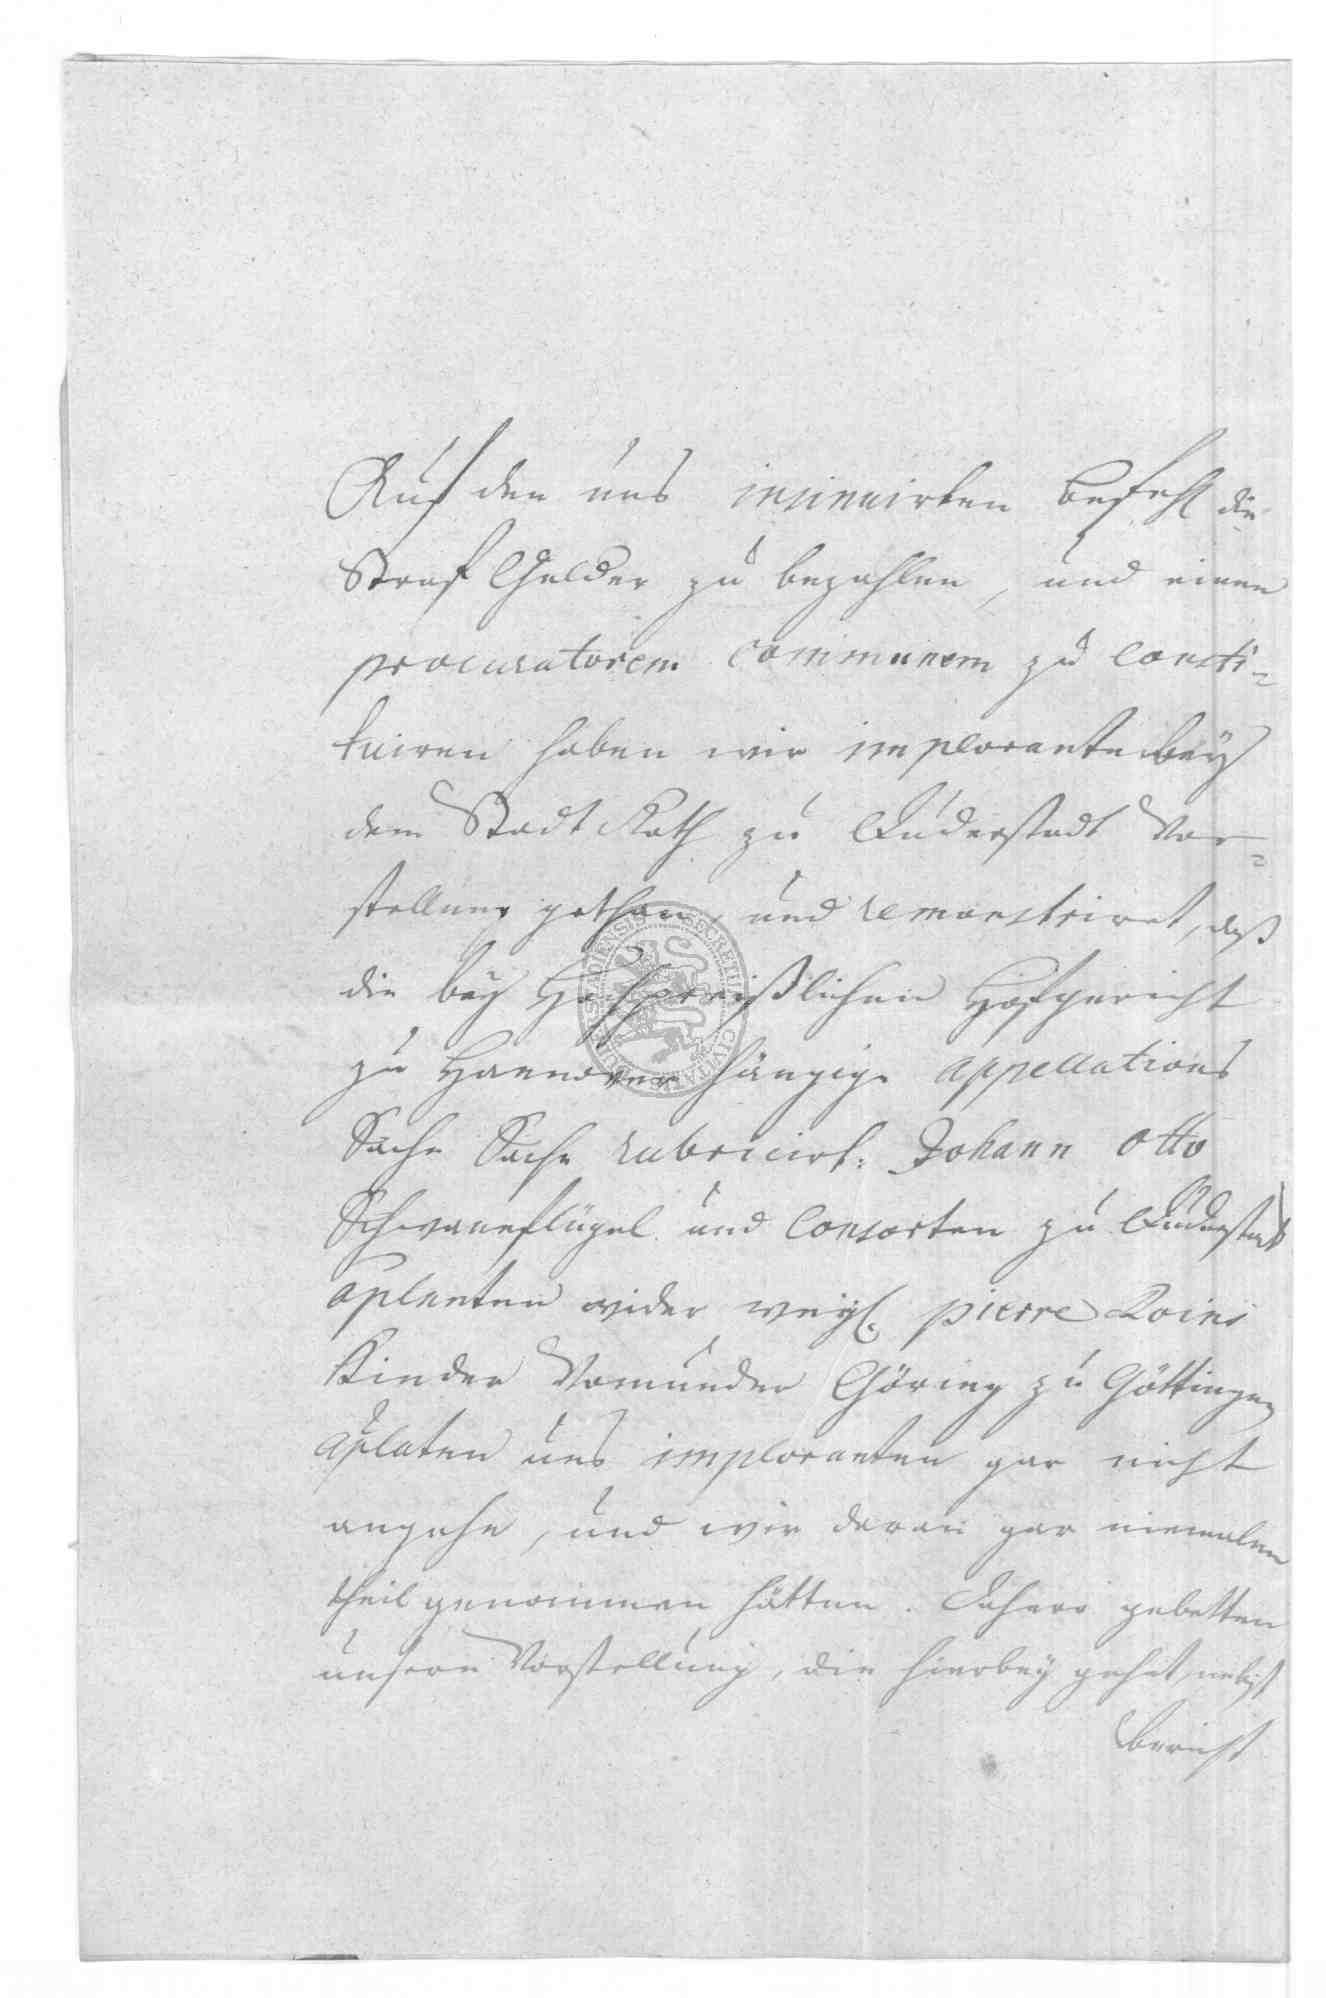 Auf den uns insinuirten befehl die
Straf Gelder zu bezahlen, und einen
procuratorem communem zu consti-
tuiren haben wir implorante bey
dem Stadt Rath zu Duderstadt Vor-
stellung gethan, und remonstriret, daß
die bey Hochpreißlichen Hofgericht
zu Hannover hängige appellations
Sache Sache rubricirt: Johann Otto
Schwaneflügel und Consorten zu Duderstadt
aplanten wider weyl. pierre
Kinder Vormunder Göring zu Göttingen
aplaten uns imploranten gar nicht
angehe, und wir daran gar niemalen
theil genommen hätten. Dahero gebetten
unsere Vorstellung, die hierbey gehet, nebst
bericht
SECRETUM CIVITATIS